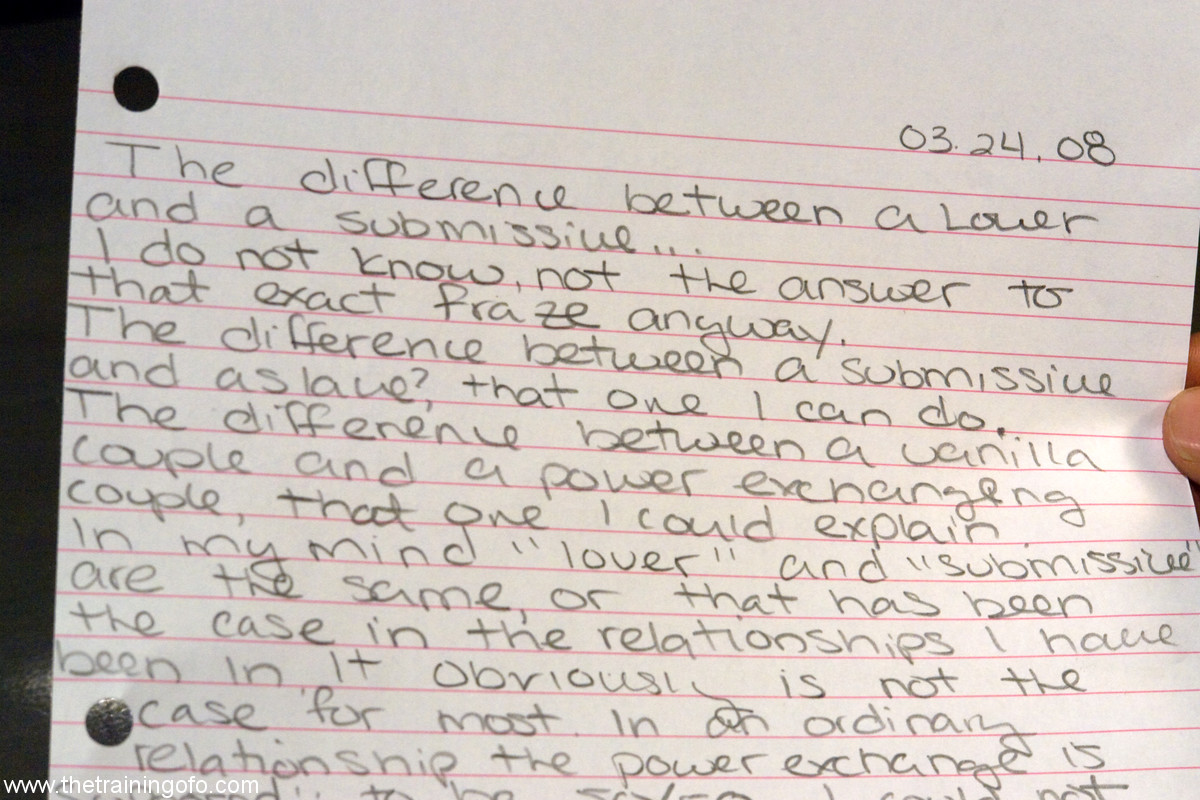 03.24.08
The difference between a Lover
and a submissive...
I do not know, not the answer to
that exact fraze anyway.
The difference between a submissive
and a slave?, that one I can do.
The difference between a vanilla
couple and a power exchangeng
couple, that one I could explain
In my mind "lover" and "submissive"
are the same, or that has been
the case in the relationships I have
been in. It obviously is not the
case for most. In an ordinary
relationship the power exchange is
to be I could not
www.thetrainingofo.com